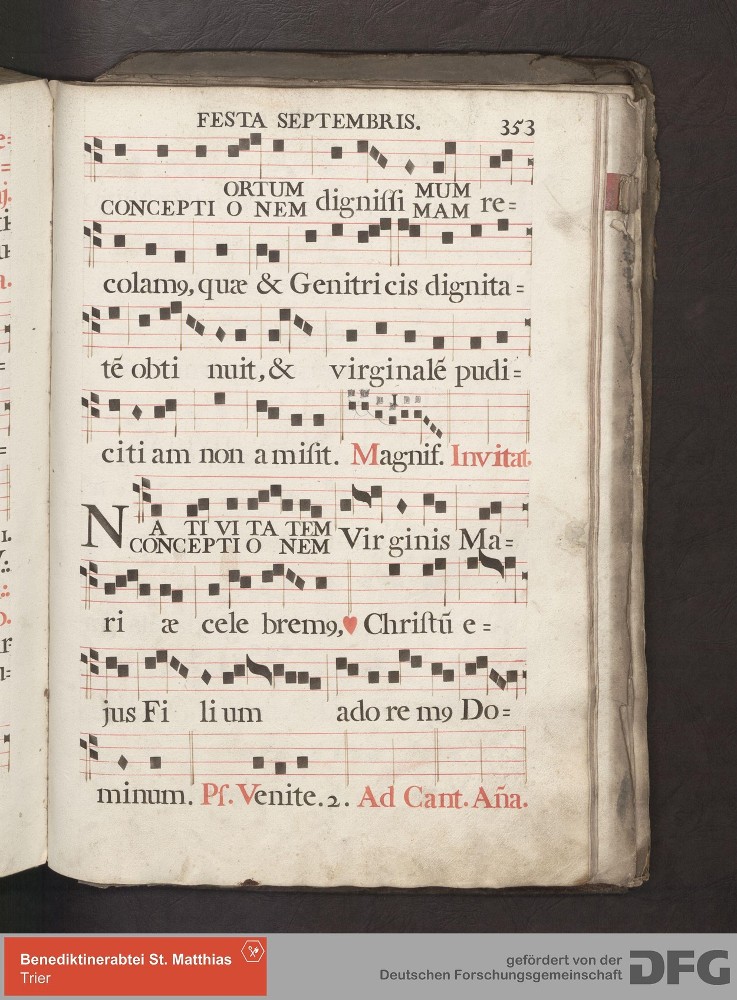 FESTA SEPTEMBRIS. 353
ORTUM MUM
CONCEPTI O NEM digniſſi MAM re=
colam9, quæ & Genitri cis dignita=
tē obti nuit, & virginalē pudi=
citi am non a miſit. Magnif. Invitat.
NA TI VI TA TEM
CONCEPTI O NEM Vir ginis Ma=
ri æ cele brem9, ♥ Chriſtū e=
jus Fi li um ado re m9 Do=
minum. Pſ. Venite. 2. Ad Cant. Aña.
Benediktinerabtei St. Matthias
Trier
gefördert von der
Deutschen Forschungsgemeinschaft DFG